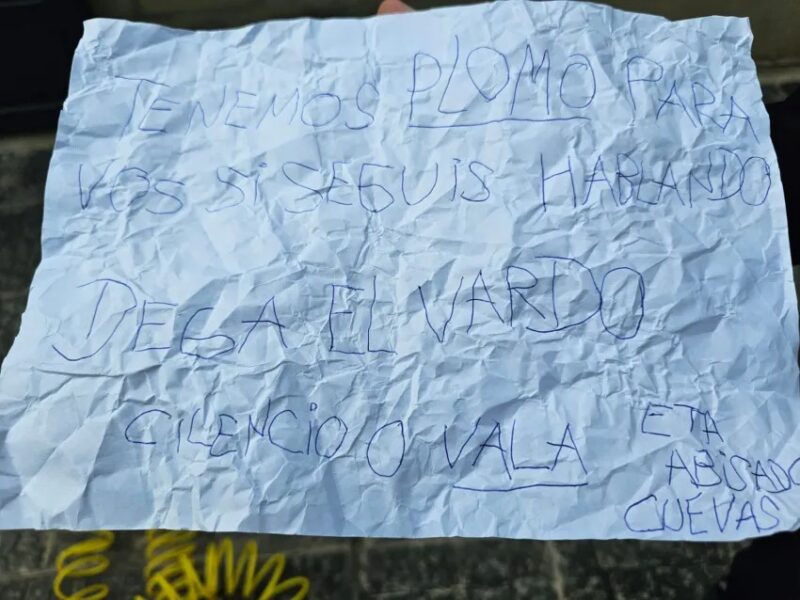 TENEMOS PLOMO PARA
VOS SI SEGUIS HABLANDO
DEGA EL VARDO
CILENCIO O VALA
ETA
ABISADO
CUEVAS